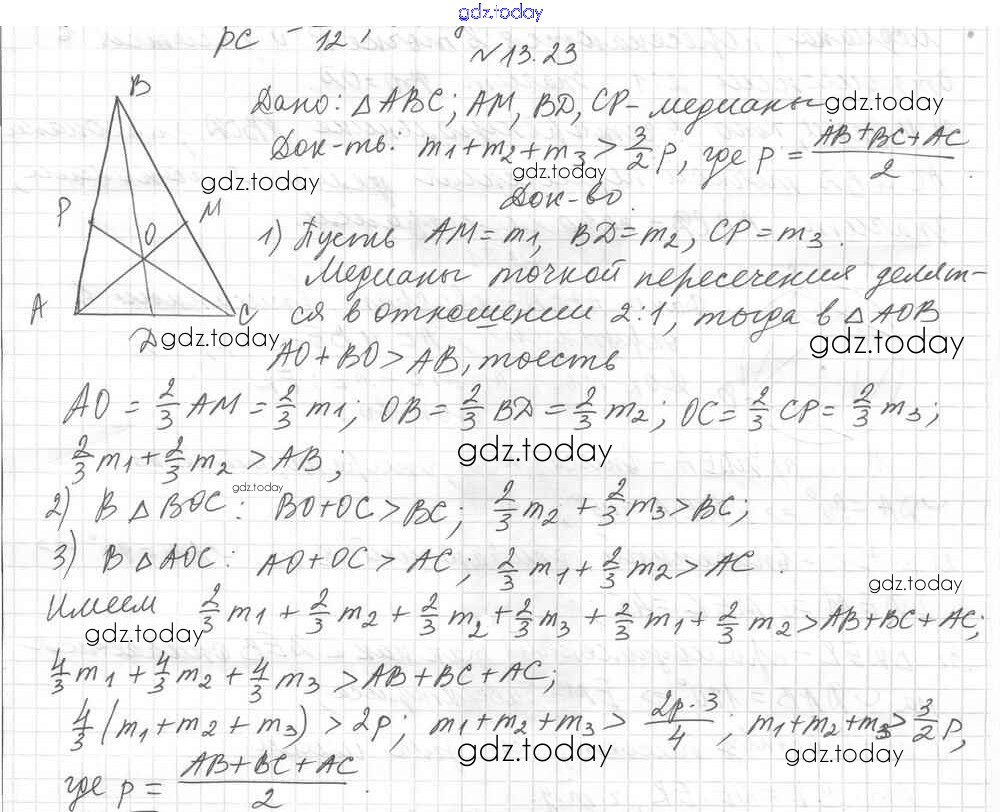 gdz.today
PC = 12
№13.23
Дано: △ABC; AM, BD, CP - медианы gdz.today
Док-ть: m1+m2+m3 > 3/2 P, где P = (AB+BC+AC)/2.
gdz.today gdz.today
Док-во.
B
P
M
O
A
C
D
1) Пусть AM = m1, BD = m2, CP = m3.
Медианы точкой пересечения делят-
ся в отношении 2:1, тогда в △AOB
gdz.today gdz.today
AO + BO > AB, тоесть
AO = 2/3 AM = 2/3 m1; OB = 2/3 BD = 2/3 m2; OC = 2/3 CP = 2/3 m3;
2/3 m1 + 2/3 m2 > AB; gdz.today
gdz.today
2) В △BOC: BO+OC > BC; 2/3 m2 + 2/3 m3 > BC;
3) В △AOC: AO+OC > AC; 2/3 m1 + 2/3 m2 > AC.
gdz.today
Имеем 2/3 m1 + 2/3 m2 + 2/3 m2 + 2/3 m3 + 2/3 m1 + 2/3 m2 > AB+BC+AC;
gdz.today
4/3 m1 + 4/3 m2 + 4/3 m3 > AB+BC+AC;
4/3 (m1 + m2 + m3) > 2p; m1+m2+m3 > (2p·3)/4; m1+m2+m3 > 3/2 P,
gdz.today gdz.today
где p = (AB+BC+AC)/2.